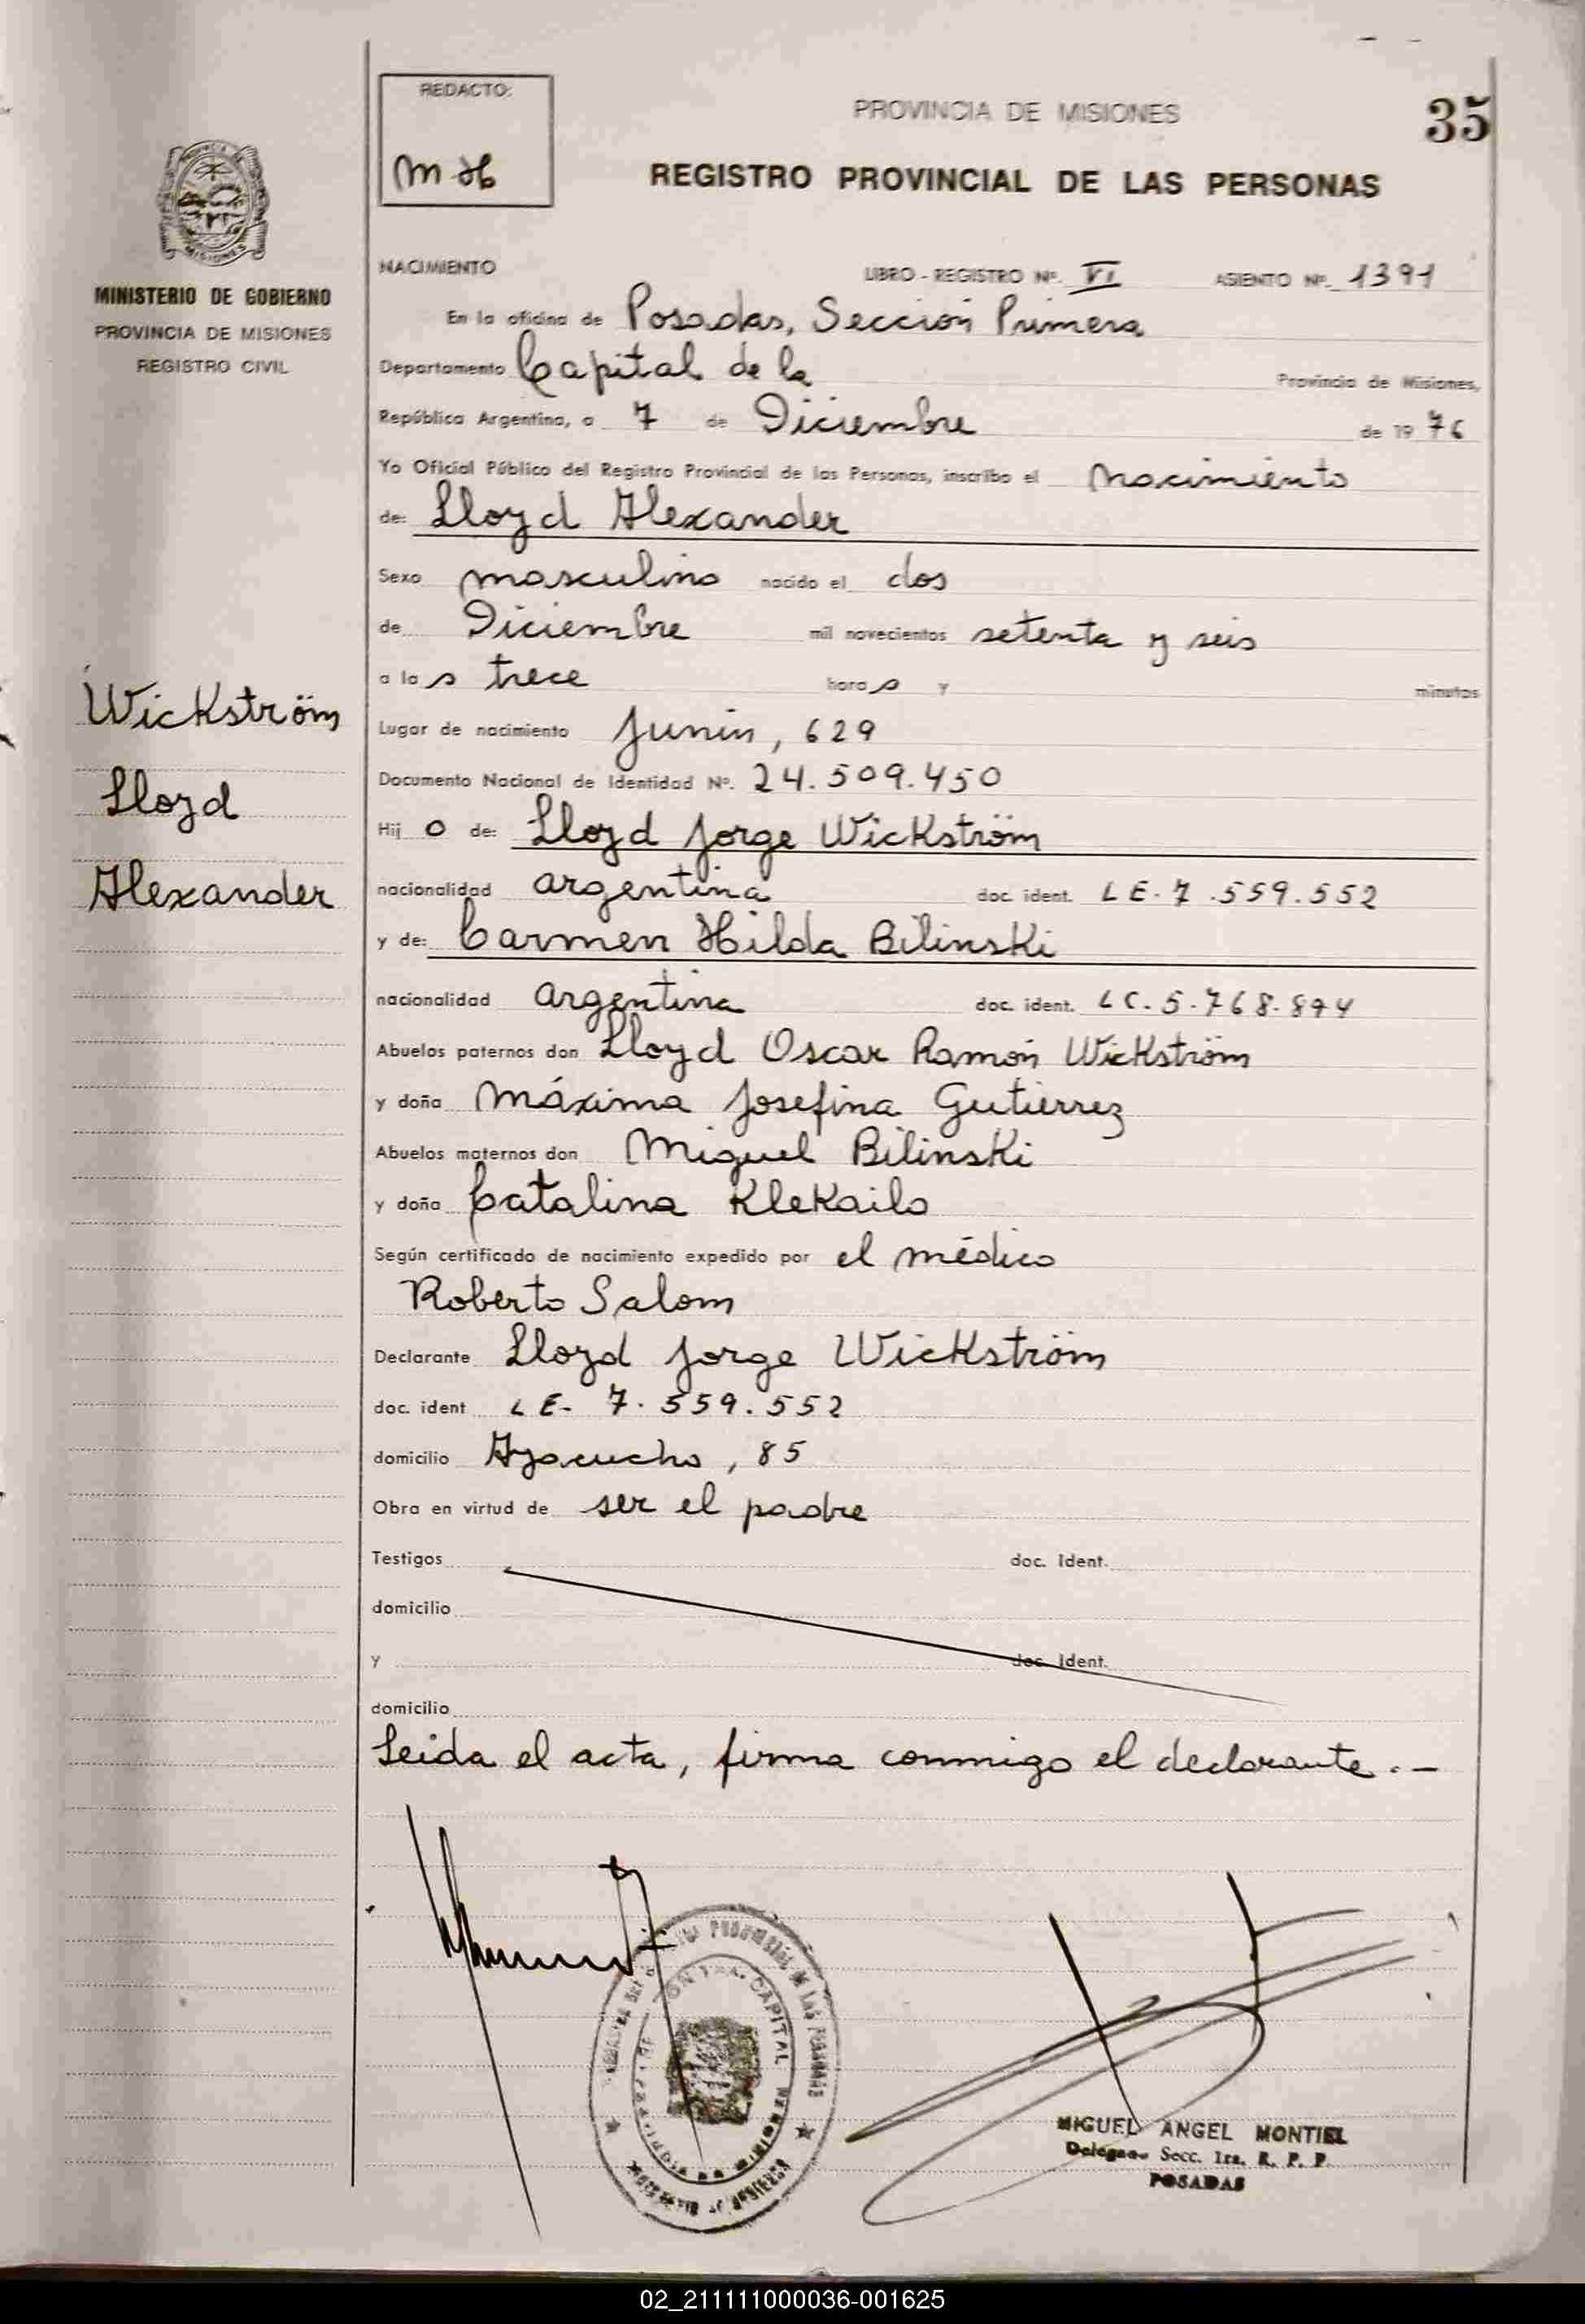 REDACTO:
M H
PROVINCIA DE MISIONES
35
REGISTRO PROVINCIAL DE LAS PERSONAS
MISIONES
MINISTERIO DE GOBIERNO
PROVINCIA DE MISIONES
REGISTRO CIVIL
NACIMIENTO LIBRO - REGISTRO Nº. VI ASIENTO Nº. 1391
En la oficina de Posadas, Sección Primera
Departamento Capital de la Provincia de Misiones,
República Argentina, a 7 de Diciembre de 1976
Yo Oficial Público del Registro Provincial de las Personas, inscribo el Nacimiento
de: Lloyd Alexander
Sexo masculino nacido el dos
de Diciembre mil novecientos setenta y seis
a las trece horas y minutos
Wickström
Lloyd
Alexander
Lugar de nacimiento Junín, 629
Documento Nacional de Identidad Nº. 24.509.450
Hijo de: Lloyd Jorge Wickström
nacionalidad argentina doc. ident. LE. 7.559.552
y de: Carmen Hilda Bilinski
nacionalidad argentina doc. ident. LC. 5.768.894
Abuelos paternos don Lloyd Oscar Ramón Wickström
y doña Máxima Josefina Gutierrez
Abuelos maternos don Miguel Bilinski
y doña Catalina Klekailo
Según certificado de nacimiento expedido por el médico
Roberto Salom
Declarante Lloyd Jorge Wickström
doc. ident LE- 7.559.552
domicilio Ayacucho, 85
Obra en virtud de ser el padre
Testigos doc. Ident.
domicilio
y doc. Ident.
domicilio
Leida el acta, firma conmigo el declarante.-
CAPITAL
MIGUEL ANGEL MONTIEL
Delegado Secc. 1ra. R. P. P.
POSADAS
02_211111000036-001625